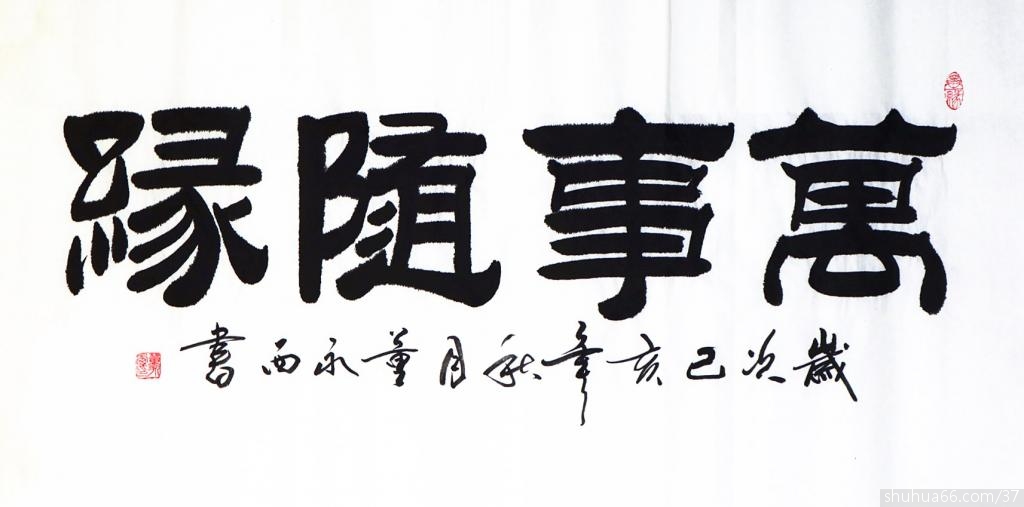 萬事隨緣
歲次己亥年秋月董永西書
shuhua66.com/37